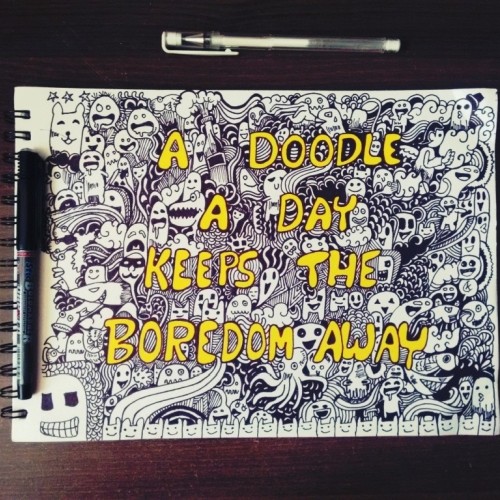 A DOODLE
A DAY
KEEPS THE
BOREDOM AWAY